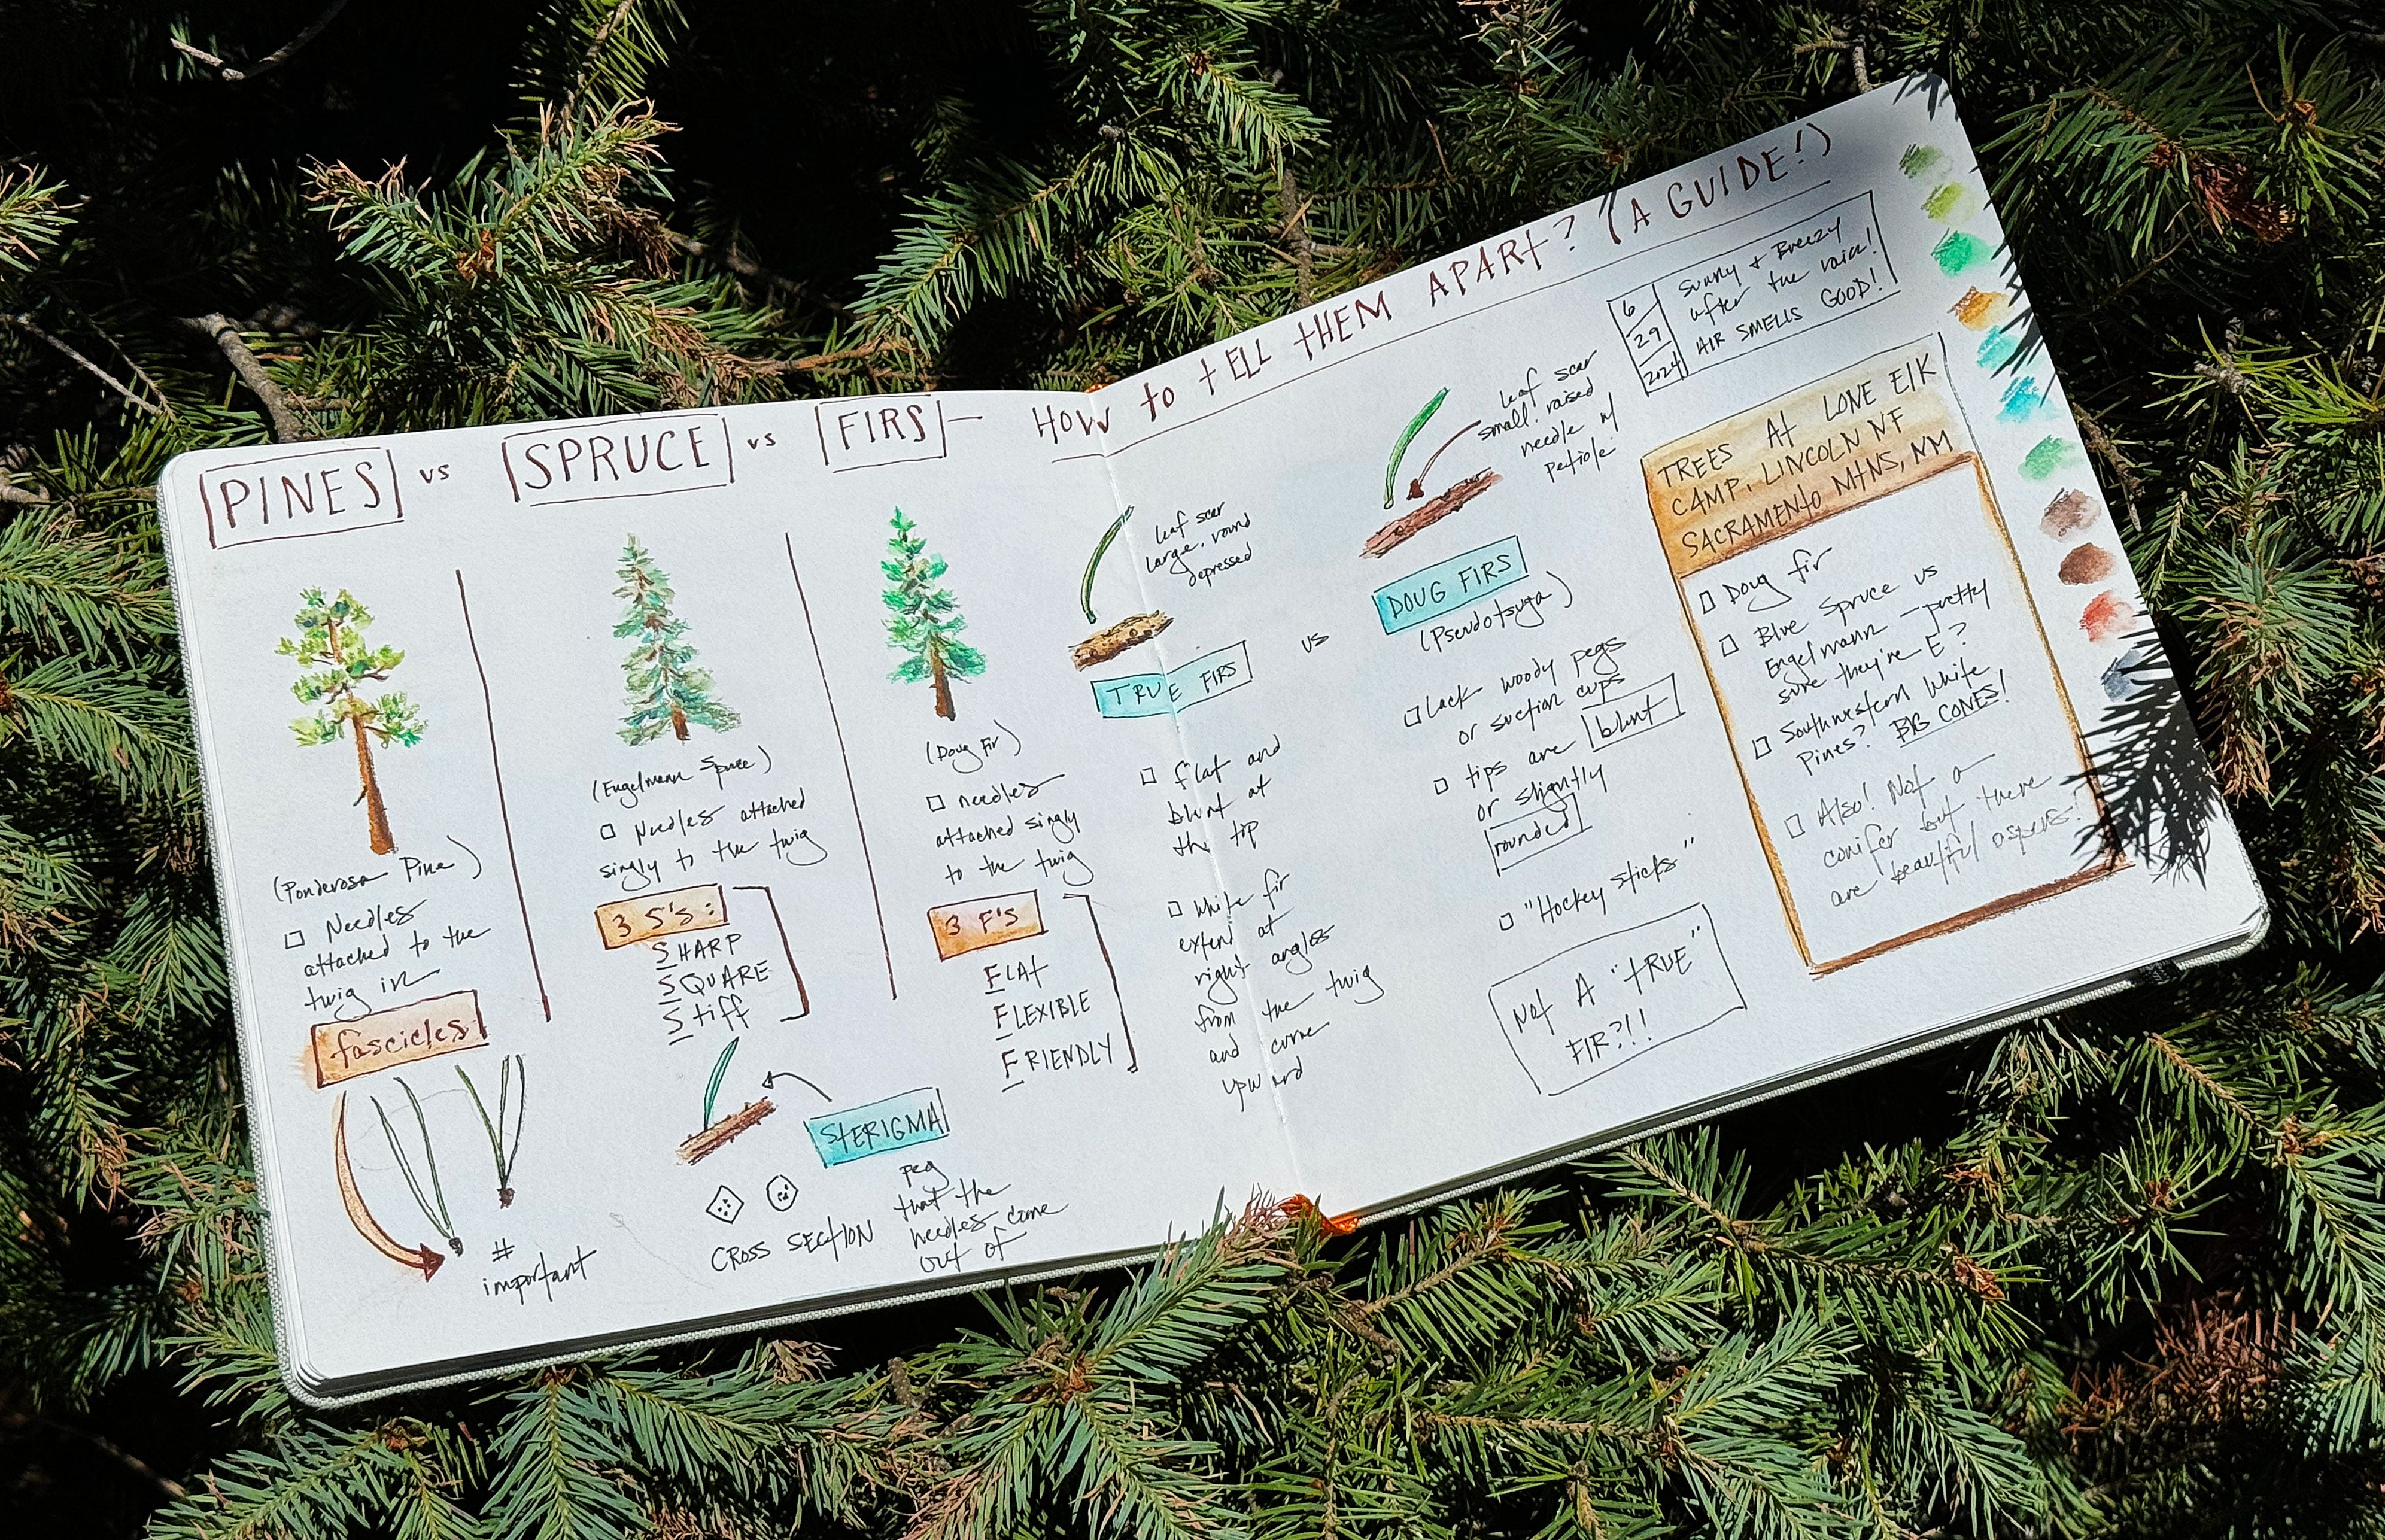 PINES vs SPRUCE vs FIRS — HOW to tELL tHEM APARt? (A GUIDE!)
6/29/2024
Sunny + Breezy
after the rain!
AIR SMELLS GOOD!
(Ponderosa Pine)
□ Needles
attached to the
twig in
fascicles
#
important
(Engelmann Spruce)
□ Needles attached
singly to the twig
3 S's:
SHARP
SQUARE
Stiff
StERIGMA
peg
that the
needles come
out of
CROSS SECtION
(Doug Fir)
□ needles
attached singly
to the twig
3 F's
FLAt
FLEXIBLE
FRIENDLY
leaf scar
large, round
depressed
TRUE FIRS
□ flat and
blunt at
the tip
□ White fir
extend at
right angles
from the twig
and curve
upward
vs
leaf scar
small! raised
needle w/
petiole
DOUG FIRS
(Pseudotsuga)
□ Lack woody pegs
or suction cups
□ tips are blunt
or slightly
rounded
□ "Hockey sticks"
Not A "tRUE"
FIR?!!
TREES At LONE ElK
CAMP, LINCOLN NF
SACRAMENtO MtNS, NM
□ Doug fir
□ Blue Spruce vs
Engelmann — pretty
sure they're E?
□ Southwestern White
Pines? BIG CONES!
□ Also! Not a
conifer but there
are beautiful aspens!